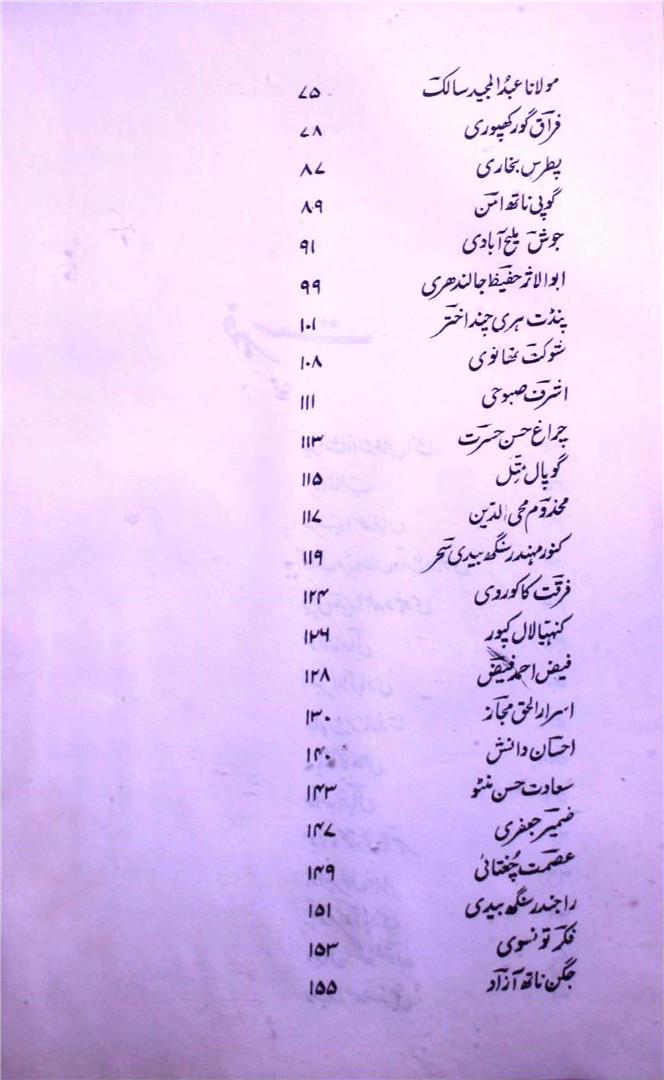 مولانا عبدُالمجید سالکؔ ۷۵
فراقؔ گورکھپوری ۷۸
پطرس بخاری ۸۷
گوپی ناتھ امنؔ ۸۹
جوشؔ ملیح آبادی ۹۱
ابوالاثر حفیظؔ جالندھری ۹۹
پنڈت ہری چند اخترؔ ۱۰۱
شوکتؔ تھانوی ۱۰۸
اشرفؔ صبوحی ۱۱۱
چراغ حسن حسرتؔ ۱۱۳
گوپال متّل ۱۱۵
مخدومؔ محی الدّین ۱۱۷
کنور مہندر سنگھ بیدی سحرؔ ۱۱۹
فرقتؔ کاکوروی ۱۲۴
کنہیا لال کپور ۱۲۶
فیض احمد فیضؔ ۱۲۸
اسرار الحق مجازؔ ۱۳۰
احسانؔ دانش ۱۴۰
سعادت حسن منٹو ۱۴۳
ضمیرؔ جعفری ۱۴۷
عصمتؔ چُغتائی ۱۴۹
راجندر سنگھ بیدی ۱۵۱
فکرؔ تونسوی ۱۵۳
جگن ناتھ آزادؔ ۱۵۵